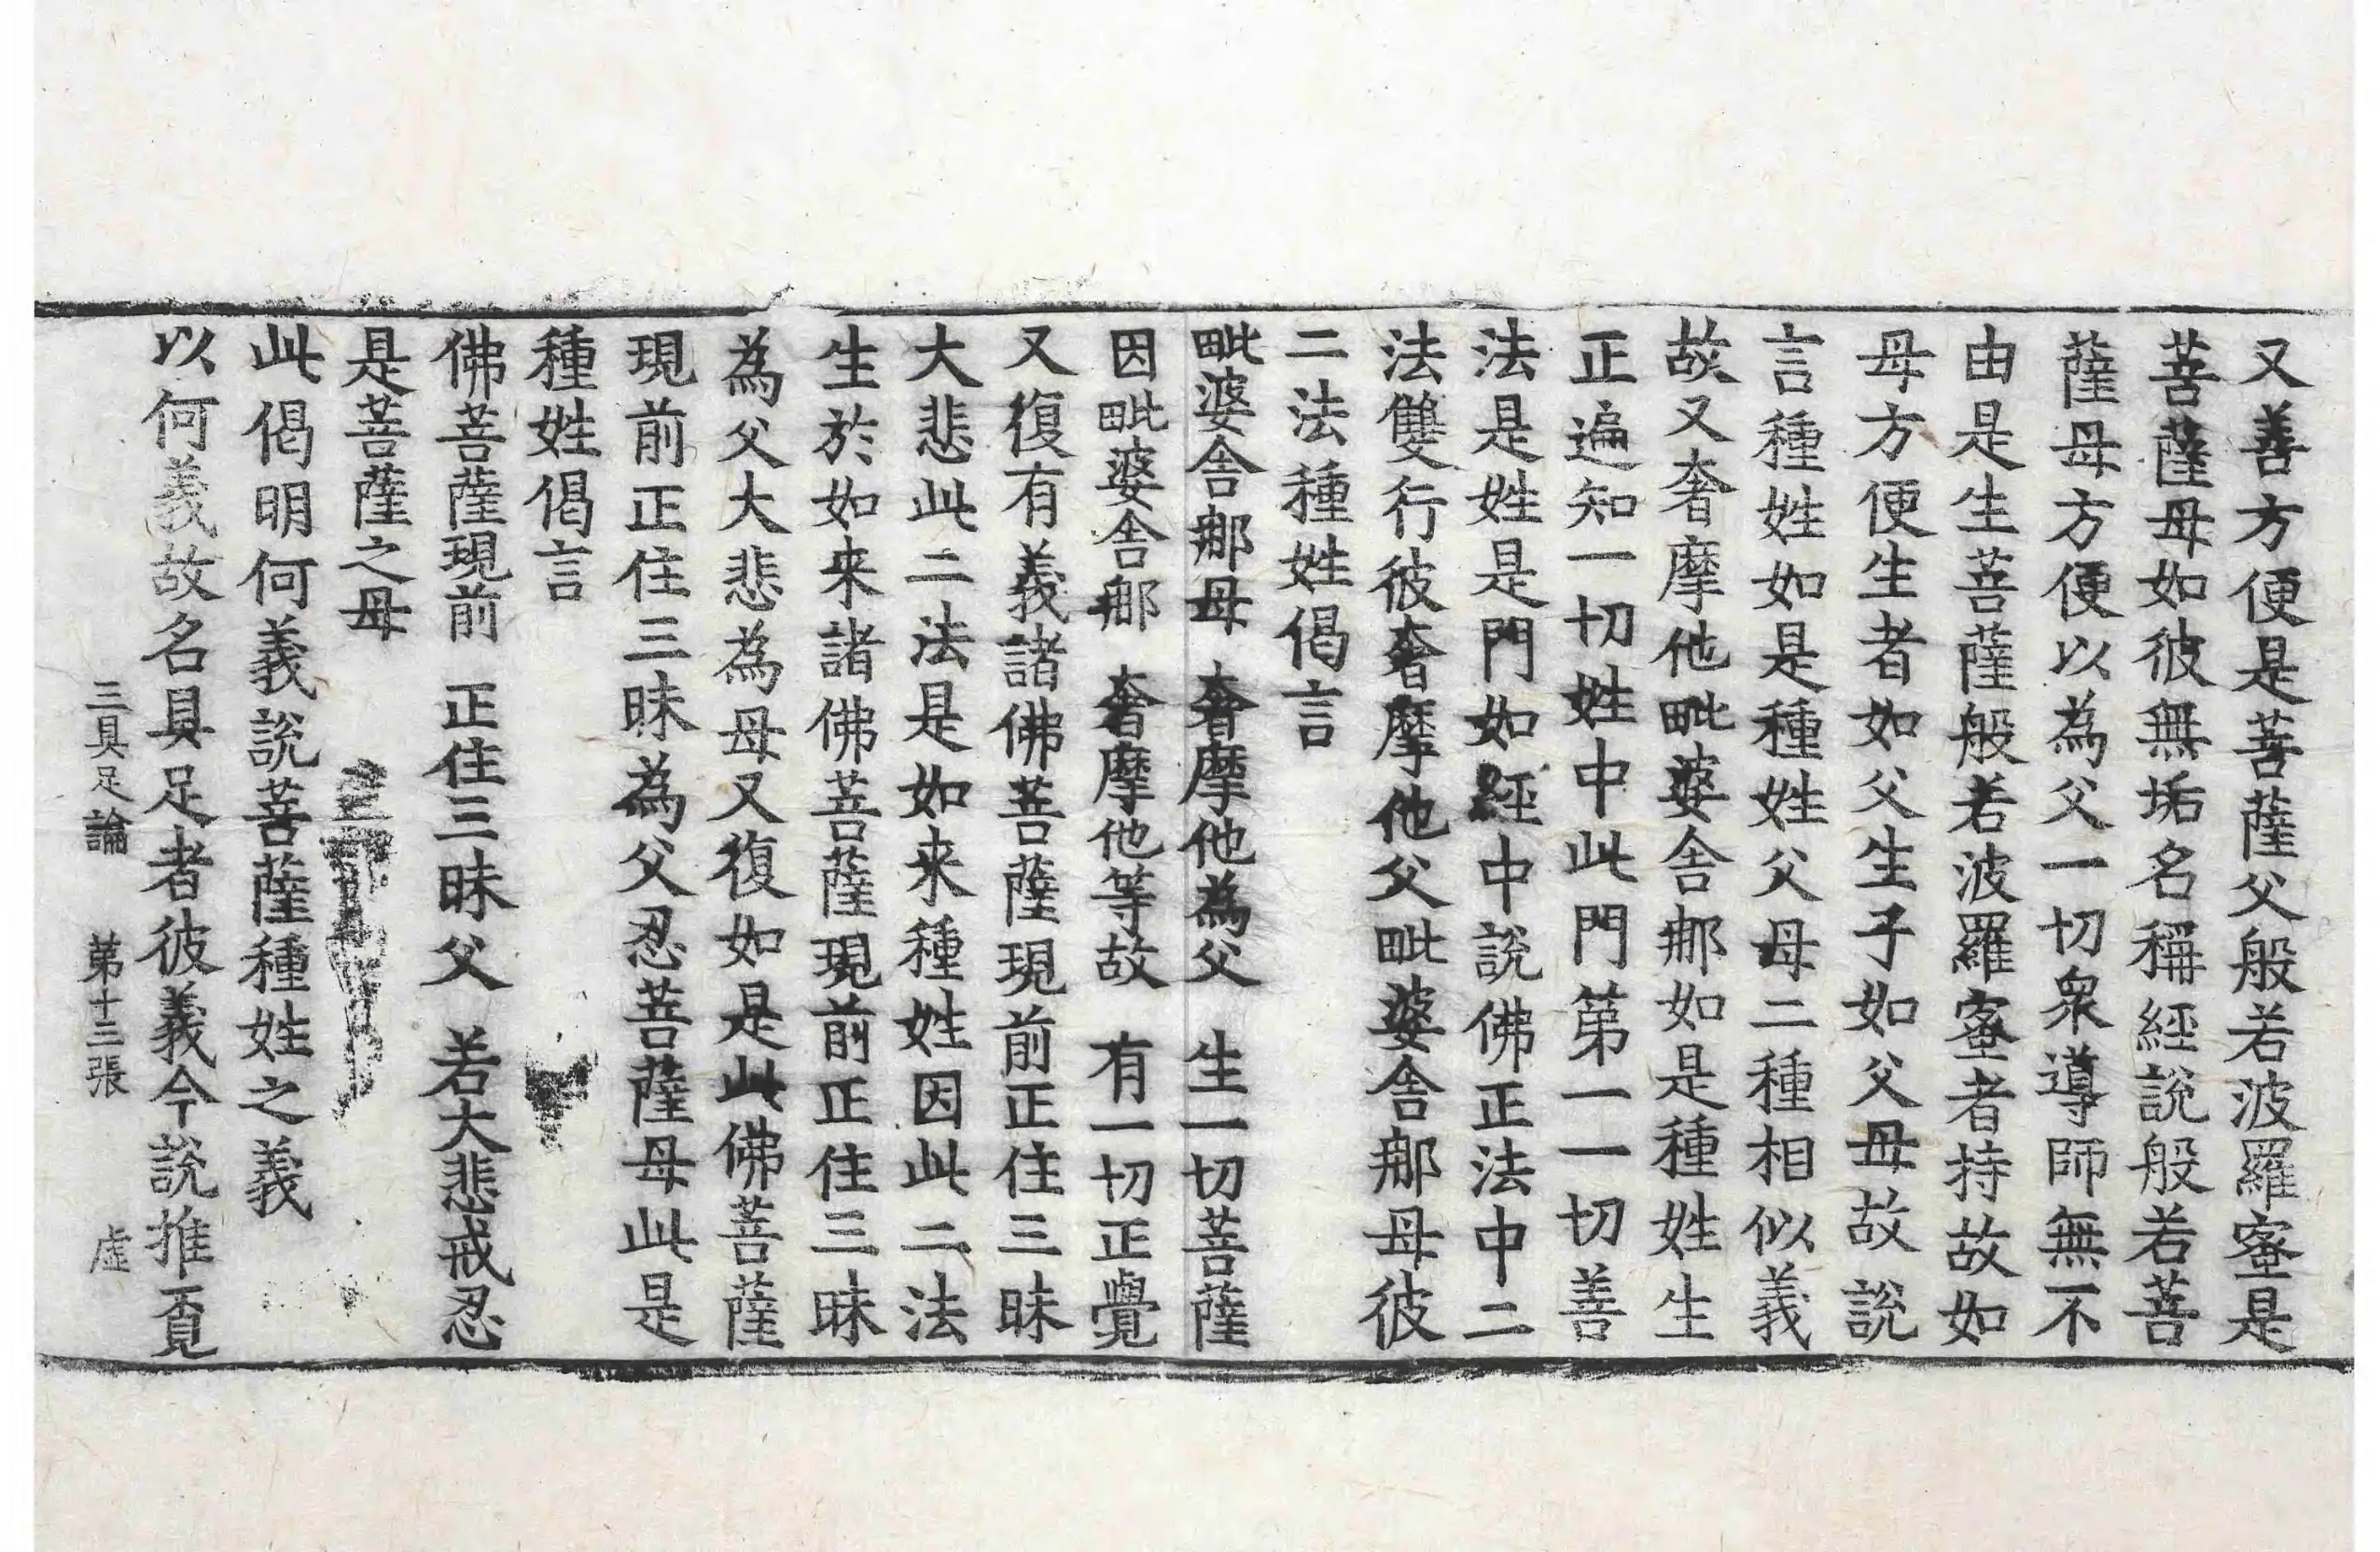 又善方便是菩薩父般若波羅蜜是
菩薩母如彼無垢名稱經說般若菩
薩母方便以為父一切衆導師無不
由是生菩薩般若波羅蜜者持故如
母方便生者如父生子如父母故說
言種姓如是種姓父母二種相似義
故又奢摩他毗婆舍那如是種姓生
正遍知一切姓中此門第一一切善
法是姓是門如經中說佛正法中二
法雙行彼奢摩他父毗婆舍那母彼
二法種姓偈言
毗婆舍那母　奢摩他為父　生一切菩薩
因毗婆舍那　奢摩他等故　有一切正覺
又復有義諸佛菩薩現前正住三昧
大悲此二法是如来種姓因此二法
生於如来諸佛菩薩現前正住三昧
為父大悲為母又復如是此佛菩薩
現前正住三昧為父忍菩薩母此是
種姓偈言
佛菩薩現前　正住三昧父　若大悲戒忍
是菩薩之母
此偈明何義說菩薩種姓之義
以何義故名具足者彼義今說推覔
三具足論　第十三張　虛